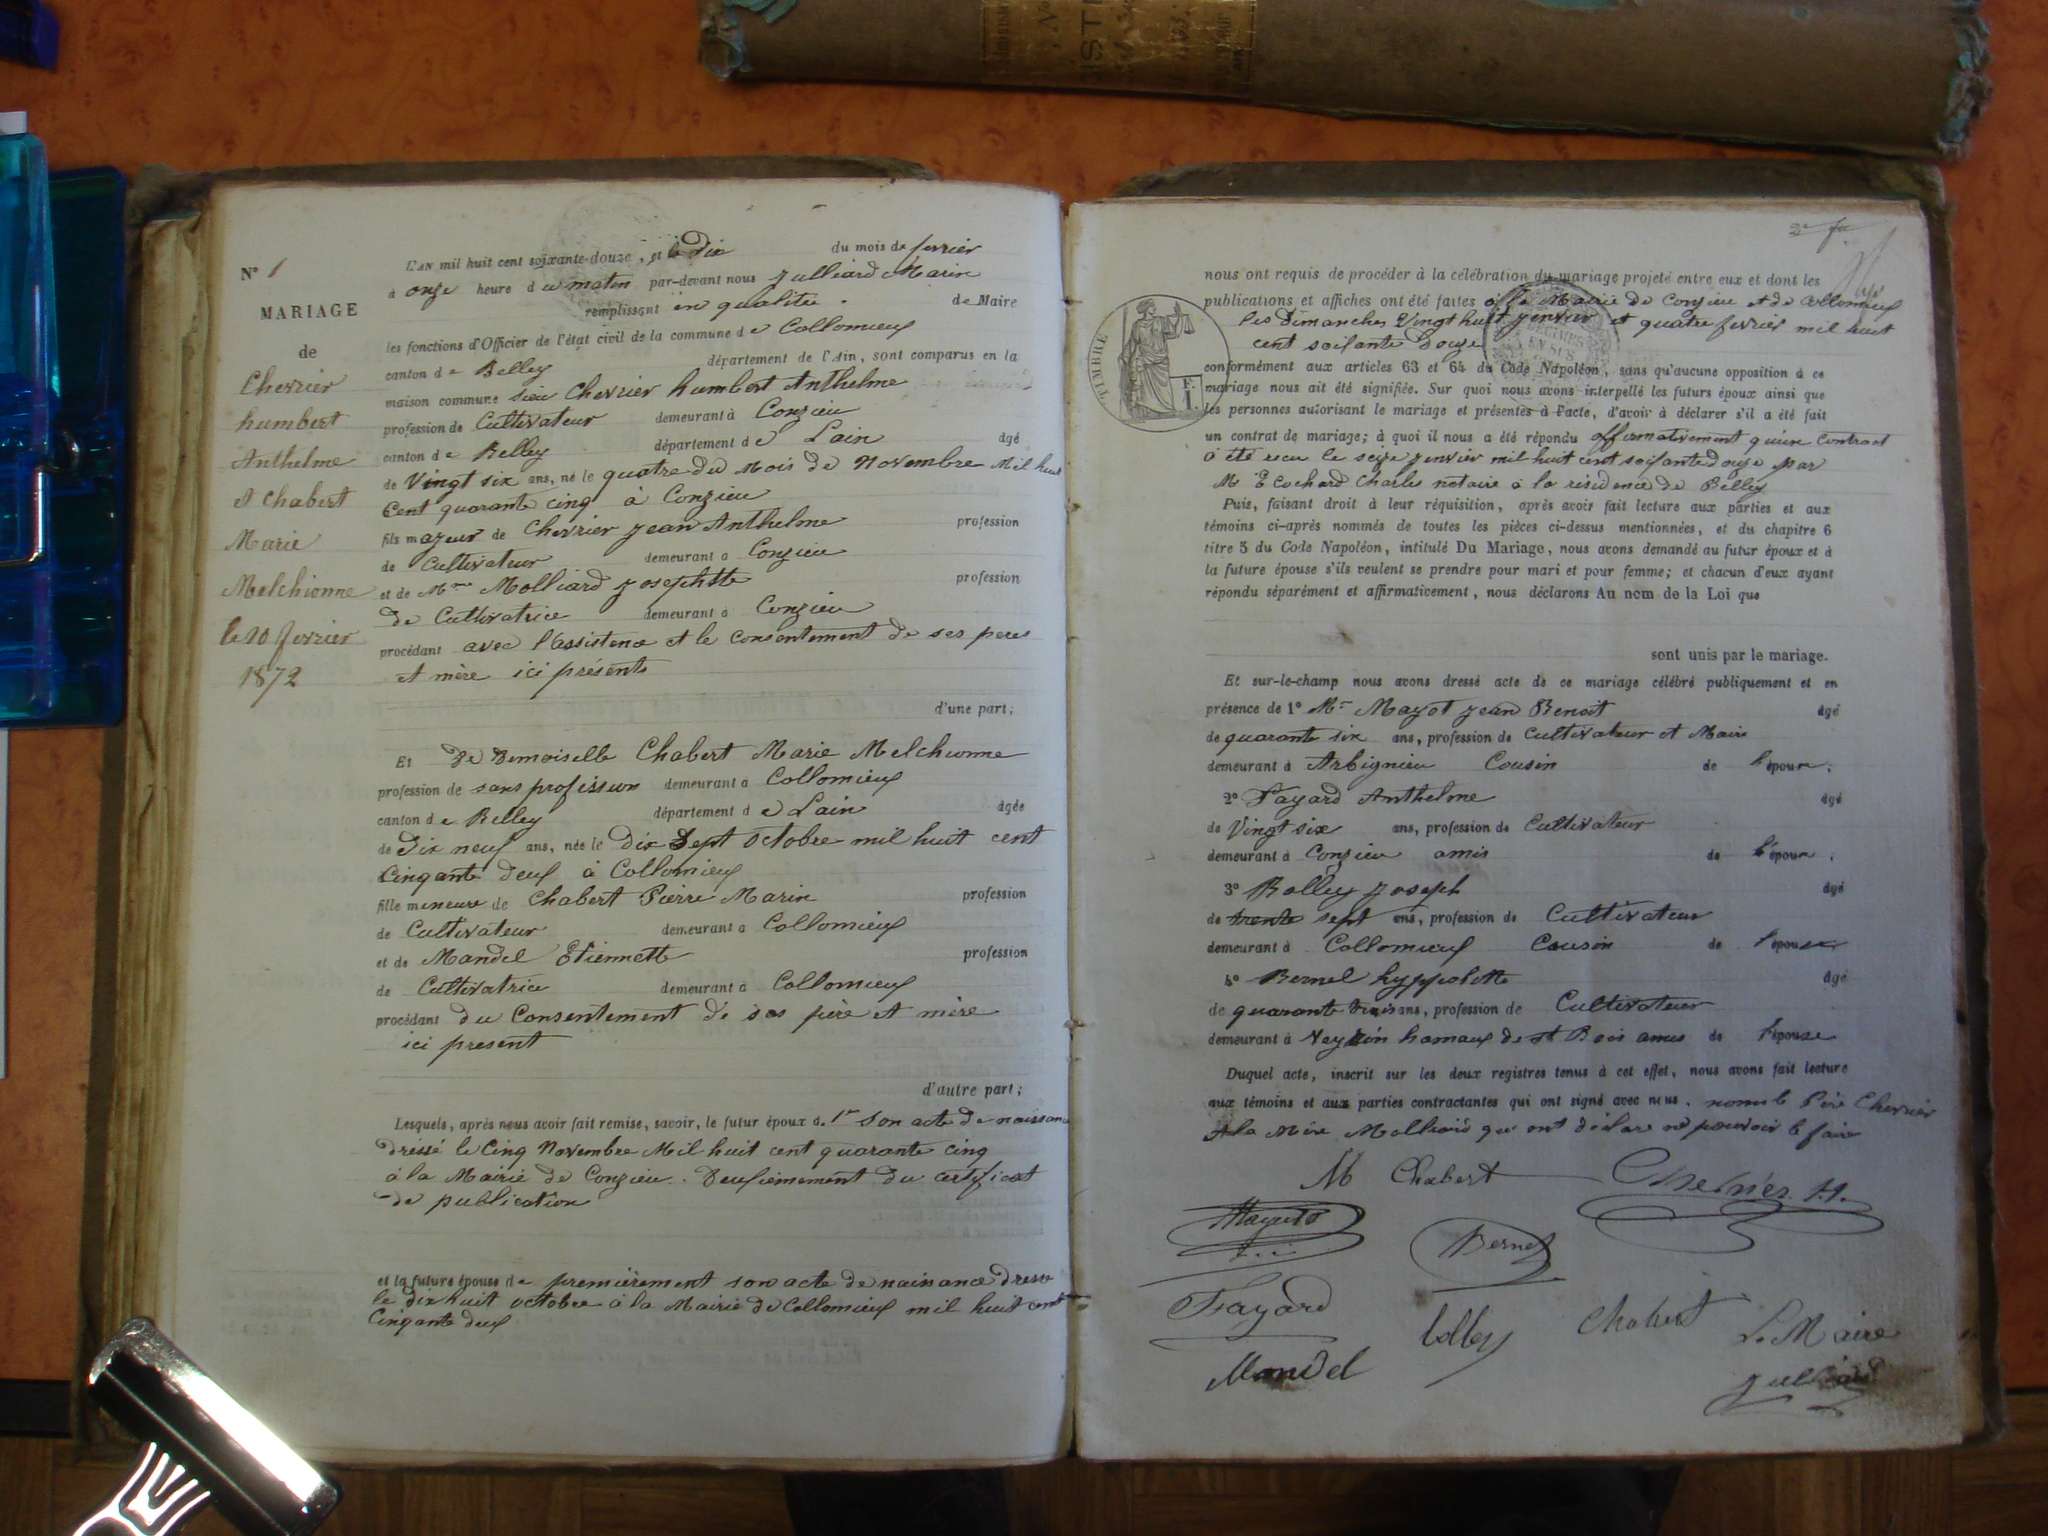 N° 1
MARIAGE
de
Chevrier
humbert
Anthelme
et Chabert
Marie
Melchionne
le 10 fevrier
1872
L'AN mil huit cent soixante-douze, et le Dix du mois de fevrier
à onze heure du matin par-devant nous Julliard Marin
remplissant en qualité de Maire
les fonctions d'Officier de l'état civil de la commune de Collomieux
canton de Belley département de l'Ain, sont comparus en la
maison commune sieu Chevrier humbert Anthelme
profession de Cultivateur demeurant à Conzieu
canton de Belley département de Lain âgé
de Vingt six ans, né le quatre du Mois de Novembre Mil huit
Cent quarante cinq à Conzieu
fils majeur de Chevrier Jean Anthelme profession
de Cultivateur demeurant à Conzieu
et de Mme Molliard Josephtte profession
de Cultivatrice demeurant à Conzieu
procédant avec l'assistence et le consentement de ses peres
et mère ici présents
d'une part;
Et De Demoiselle Chabert Marie Melchionne
profession de sans profission demeurant à Collomieux
canton de Belley département de Lain âgée
de Dix neuf ans, née le Dix Sept Octobre mil huit cent
Cinqante deux à Collomieux
fille meneure de Chabert Pierre Marin profession
de Cultivateur demeurant à Collomieux
et de Mandel Etiennette profession
de Cultivatrice demeurant à Collomieux
procédant du Consentement de ses père et mère
ici present
d'autre part;
Lesquels, après nous avoir fait remise, savoir, le futur époux d. 1er son acte de naissance
dressé le Cinq Novembre Mil huit cent quarante cinq
à la Mairie de Conzieu. Deuxiemement du certificat
de publication
et la future épouse de premièrement son acte de naissance dressé
le dix huit octobre à la Mairie de Collomieux mil huit cent
Cinqante deux
nous ont requis de procéder à la célébration du mariage projeté entre eux et dont les
publications et affiches ont été faites à la Mairie de Conzieu et de Collomieux
les Dimanches Vingt huit Janvier et quatre fevrier mil huit
cent soixante Douze
conformément aux articles 63 et 64 du Code Napoléon, sans qu'aucune opposition à ce
mariage nous ait été signifiée. Sur quoi nous avons interpellé les futurs époux ainsi que
les personnes autorisant le mariage et présentes à l'acte, d'avoir à déclarer s'il a été fait
un contrat de mariage; à quoi il nous a été répondu affirmativement qu'un Contrat
a été recu le seize Janvier mil huit cent soixante douze par
Me Ecochard Charles notaire à la résidence de Belley
Puis, faisant droit à leur réquisition, après avoir fait lecture aux parties et aux
témoins ci-après nommés de toutes les pièces ci-dessus mentionnées, et du chapitre 6
titre 5 du Code Napoléon, intitulé Du Mariage, nous avons demandé au futur époux et à
la future épouse s'ils veulent se prendre pour mari et pour femme; et chacun d'eux ayant
répondu séparément et affirmativement, nous déclarons Au nom de la Loi que
sont unis par le mariage.
Et sur-le-champ nous avons dressé acte de ce mariage célébré publiquement et en
présence de 1° Mr Mayot Jean Benoit âgé
de quarante six ans, profession de Cultivateur et Maire
demeurant à Arbignieu Cousin de l'époux;
2° Fayard Anthelme âgé
de Vingt six ans, profession de Cultivateur
demeurant à Conzieu amis de l'époux;
3° Bolley Joseph âgé
de trente sept ans, profession de Cultivateur
demeurant à Collomieux Cousin de l'épouse
4° Bernel hyppolitte âgé
de quarante trois ans, profession de Cultivateur
demeurant à Veyzin hamaux de St Bois amis de l'épouse
Duquel acte, inscrit sur les deux registres tenus à cet effet, nous avons fait lecture
aux témoins et aux parties contractantes qui ont signé avec nous. nomi le Père Chevrier
et la Mère Molliard qui ont déclaré ne pouvoir le faire
TIMBRE
M Chabert Chevrier H.
Bernel
Fayard
Bolley Chabert Le Maire
Mandel Julliard